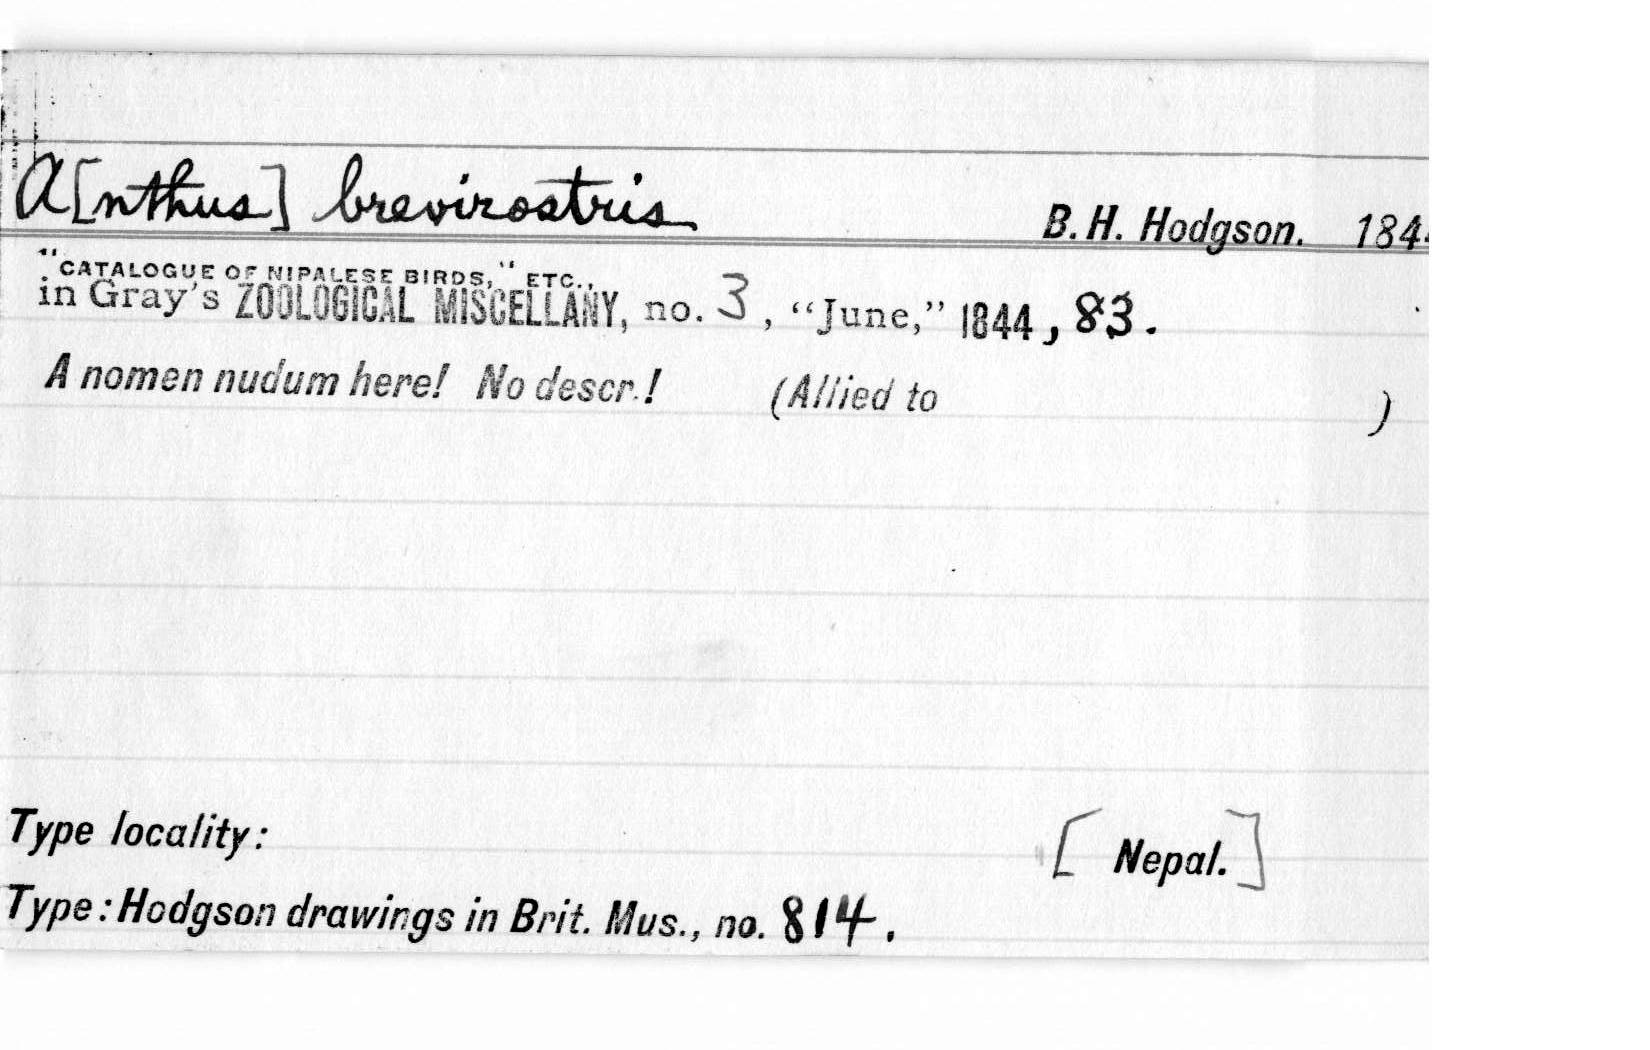 A[nthus] brevirostris B. H. Hodgson. 184
"CATALOGUE OF NIPALESE BIRDS," ETC.,
in Gray's ZOOLOGICAL MISCELLANY, no. 3, "June," 1844, 83.
A nomen nudum here! No descr.! (Allied to )
Type locality: [Nepal.]
Type: Hodgson drawings in Brit. Mus., no. 814.